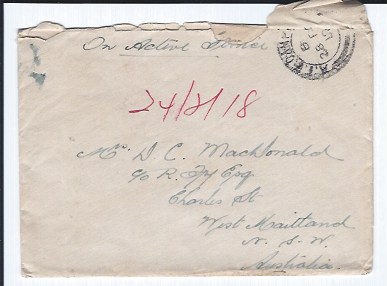 On Active Service
24/2/18
Mrs D. C. MacDonald
c/o R. Fry Esq
Charles St
West Maitland
N. S. W.
Australia.